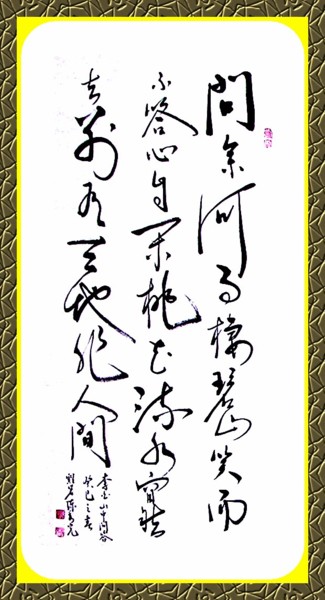 問余何事棲碧山笑而
不答心自閑桃花流水窅然
去別有天地非人間
李白山中問答
癸巳之春